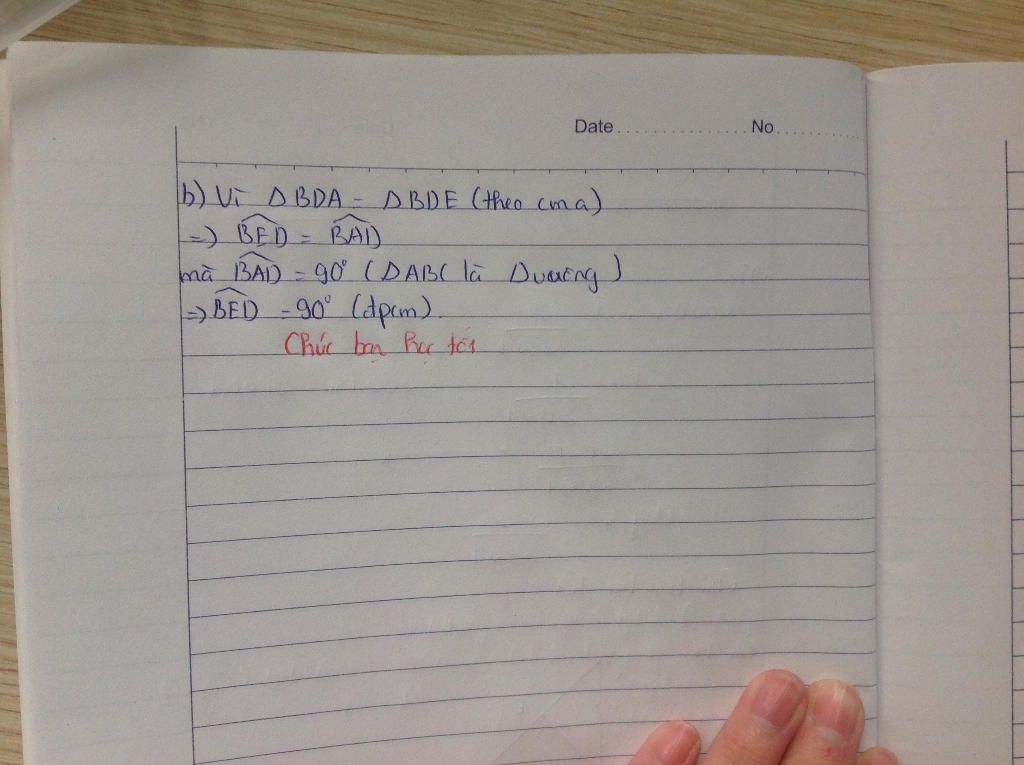 Date............... No............
b) Vì ΔBDA = ΔBDE (theo cm a)
=) \widehat{BED} = \widehat{BAD}
mà \widehat{BAD} = 90° (ΔABC là Δvuông)
=> \widehat{BED} = 90° (đpcm).
Chúc bạn học tốt